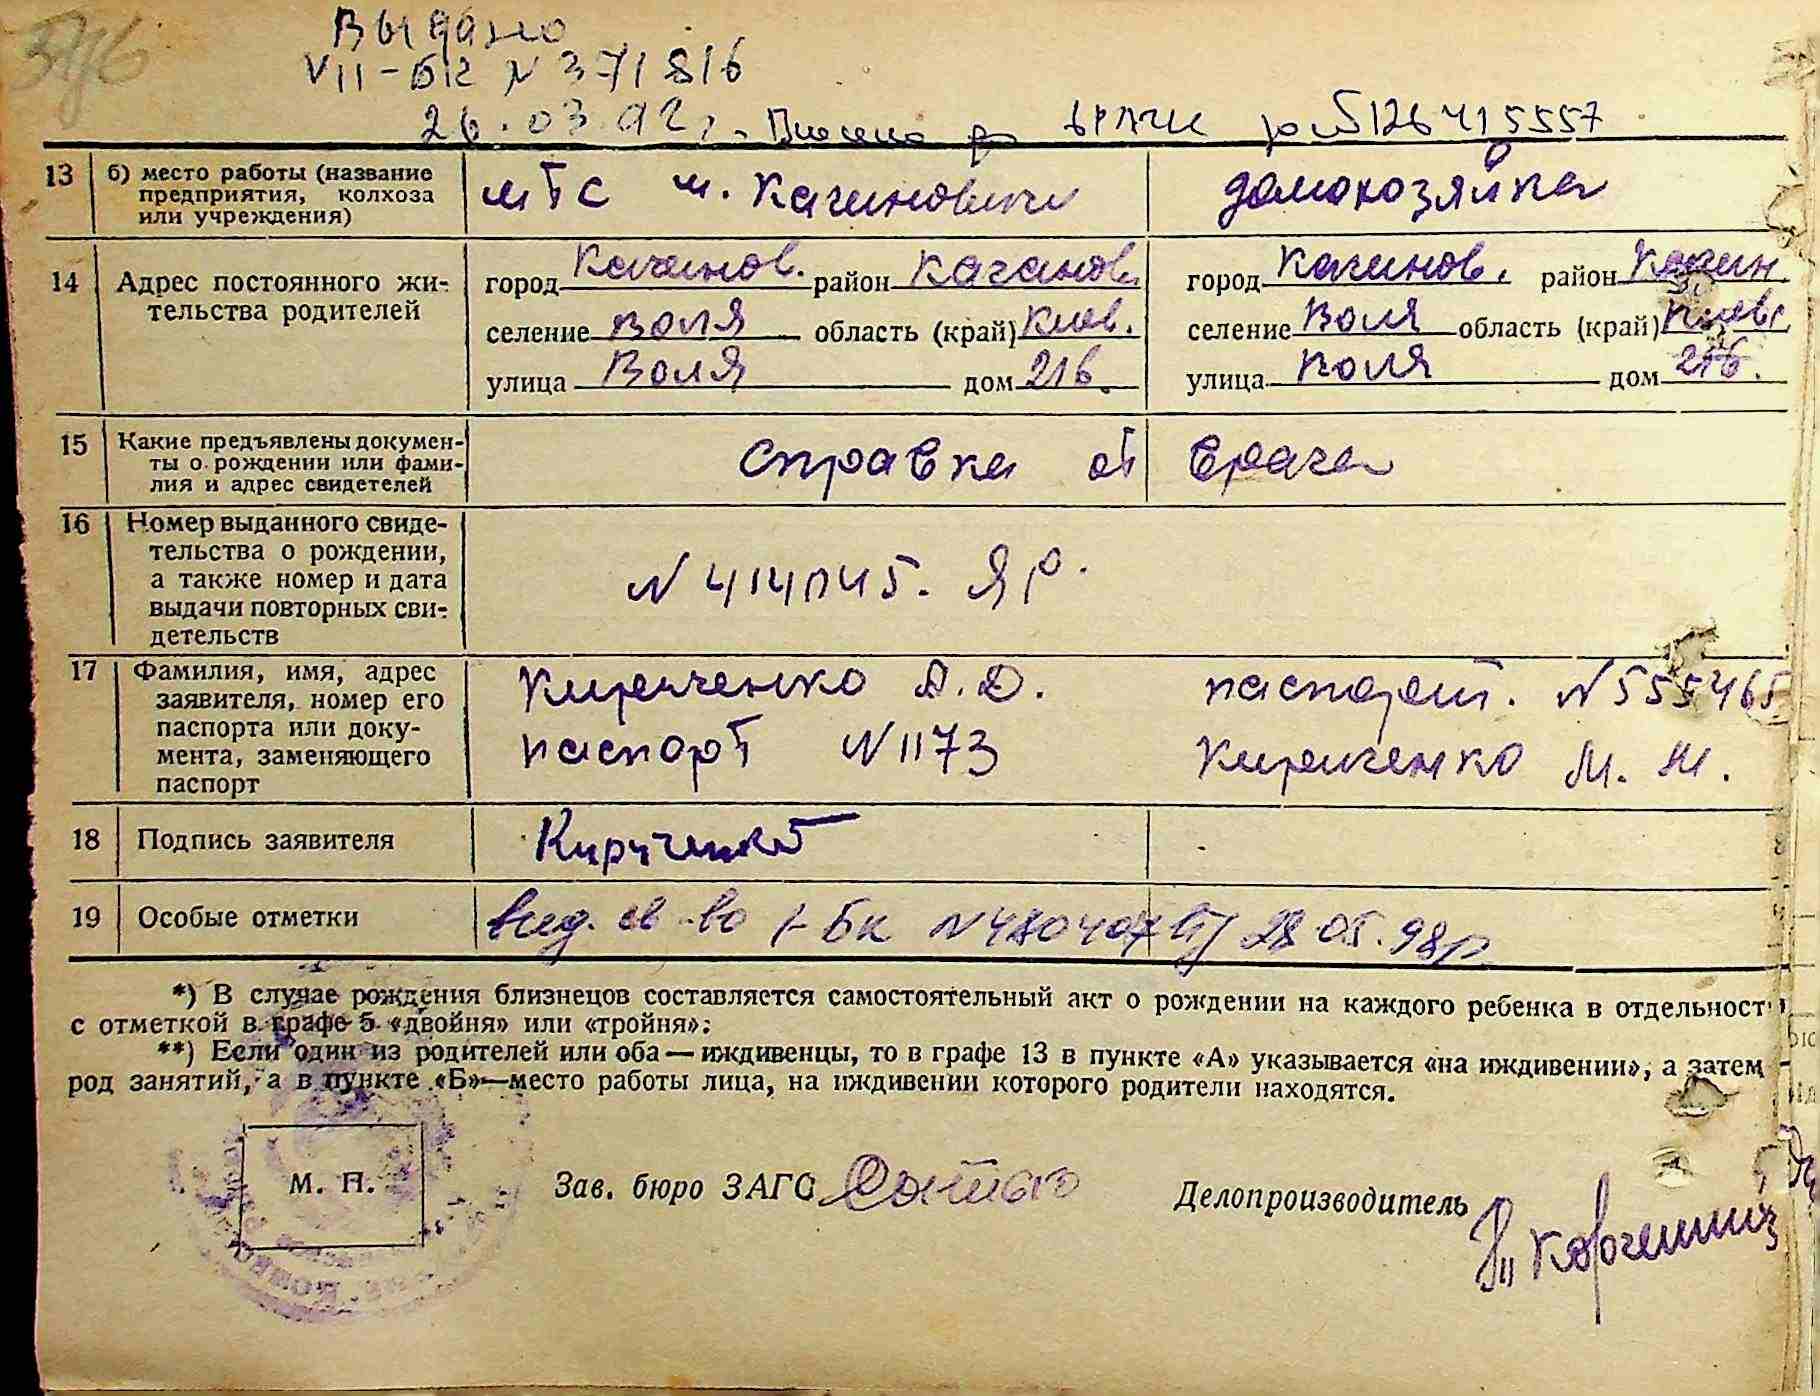 Выдано
VII-БК N 371816
26.03.92 г.
13 б) место работы (название предприятия, колхоза или учреждения) МТС м. домохозяйка
14 Адрес постоянного жительства родителей
город район Каганов. город район
селение Воля область (край) Киев. селение Воля область (край) Киев.
улица Воля дом 216. улица Воля дом 216.
15 Какие предъявлены документы о рождении или фамилия и адрес свидетелей справка от врача
16 Номер выданного свидетельства о рождении, а также номер и дата выдачи повторных свидетельств
17 Фамилия, имя, адрес заявителя, номер его паспорта или документа, заменяющего паспорт
Кириченко А.Д. паспорт. N 555465
паспорт N 1173 Кириченко М.
18 Подпись заявителя Кириченко
19 Особые отметки вид. св-во I-БК 28.05.98р
*) В случае рождения близнецов составляется самостоятельный акт о рождении на каждого ребенка в отдельност
с отметкой в графе 5 «двойня» или «тройня»;
**) Если один из родителей или оба — иждивенцы, то в графе 13 в пункте «А» указывается «на иждивении», а затем
род занятий, а в пункте «Б»—место работы лица, на иждивении которого родители находятся.
М. П. Зав. бюро ЗАГС Делопроизводитель